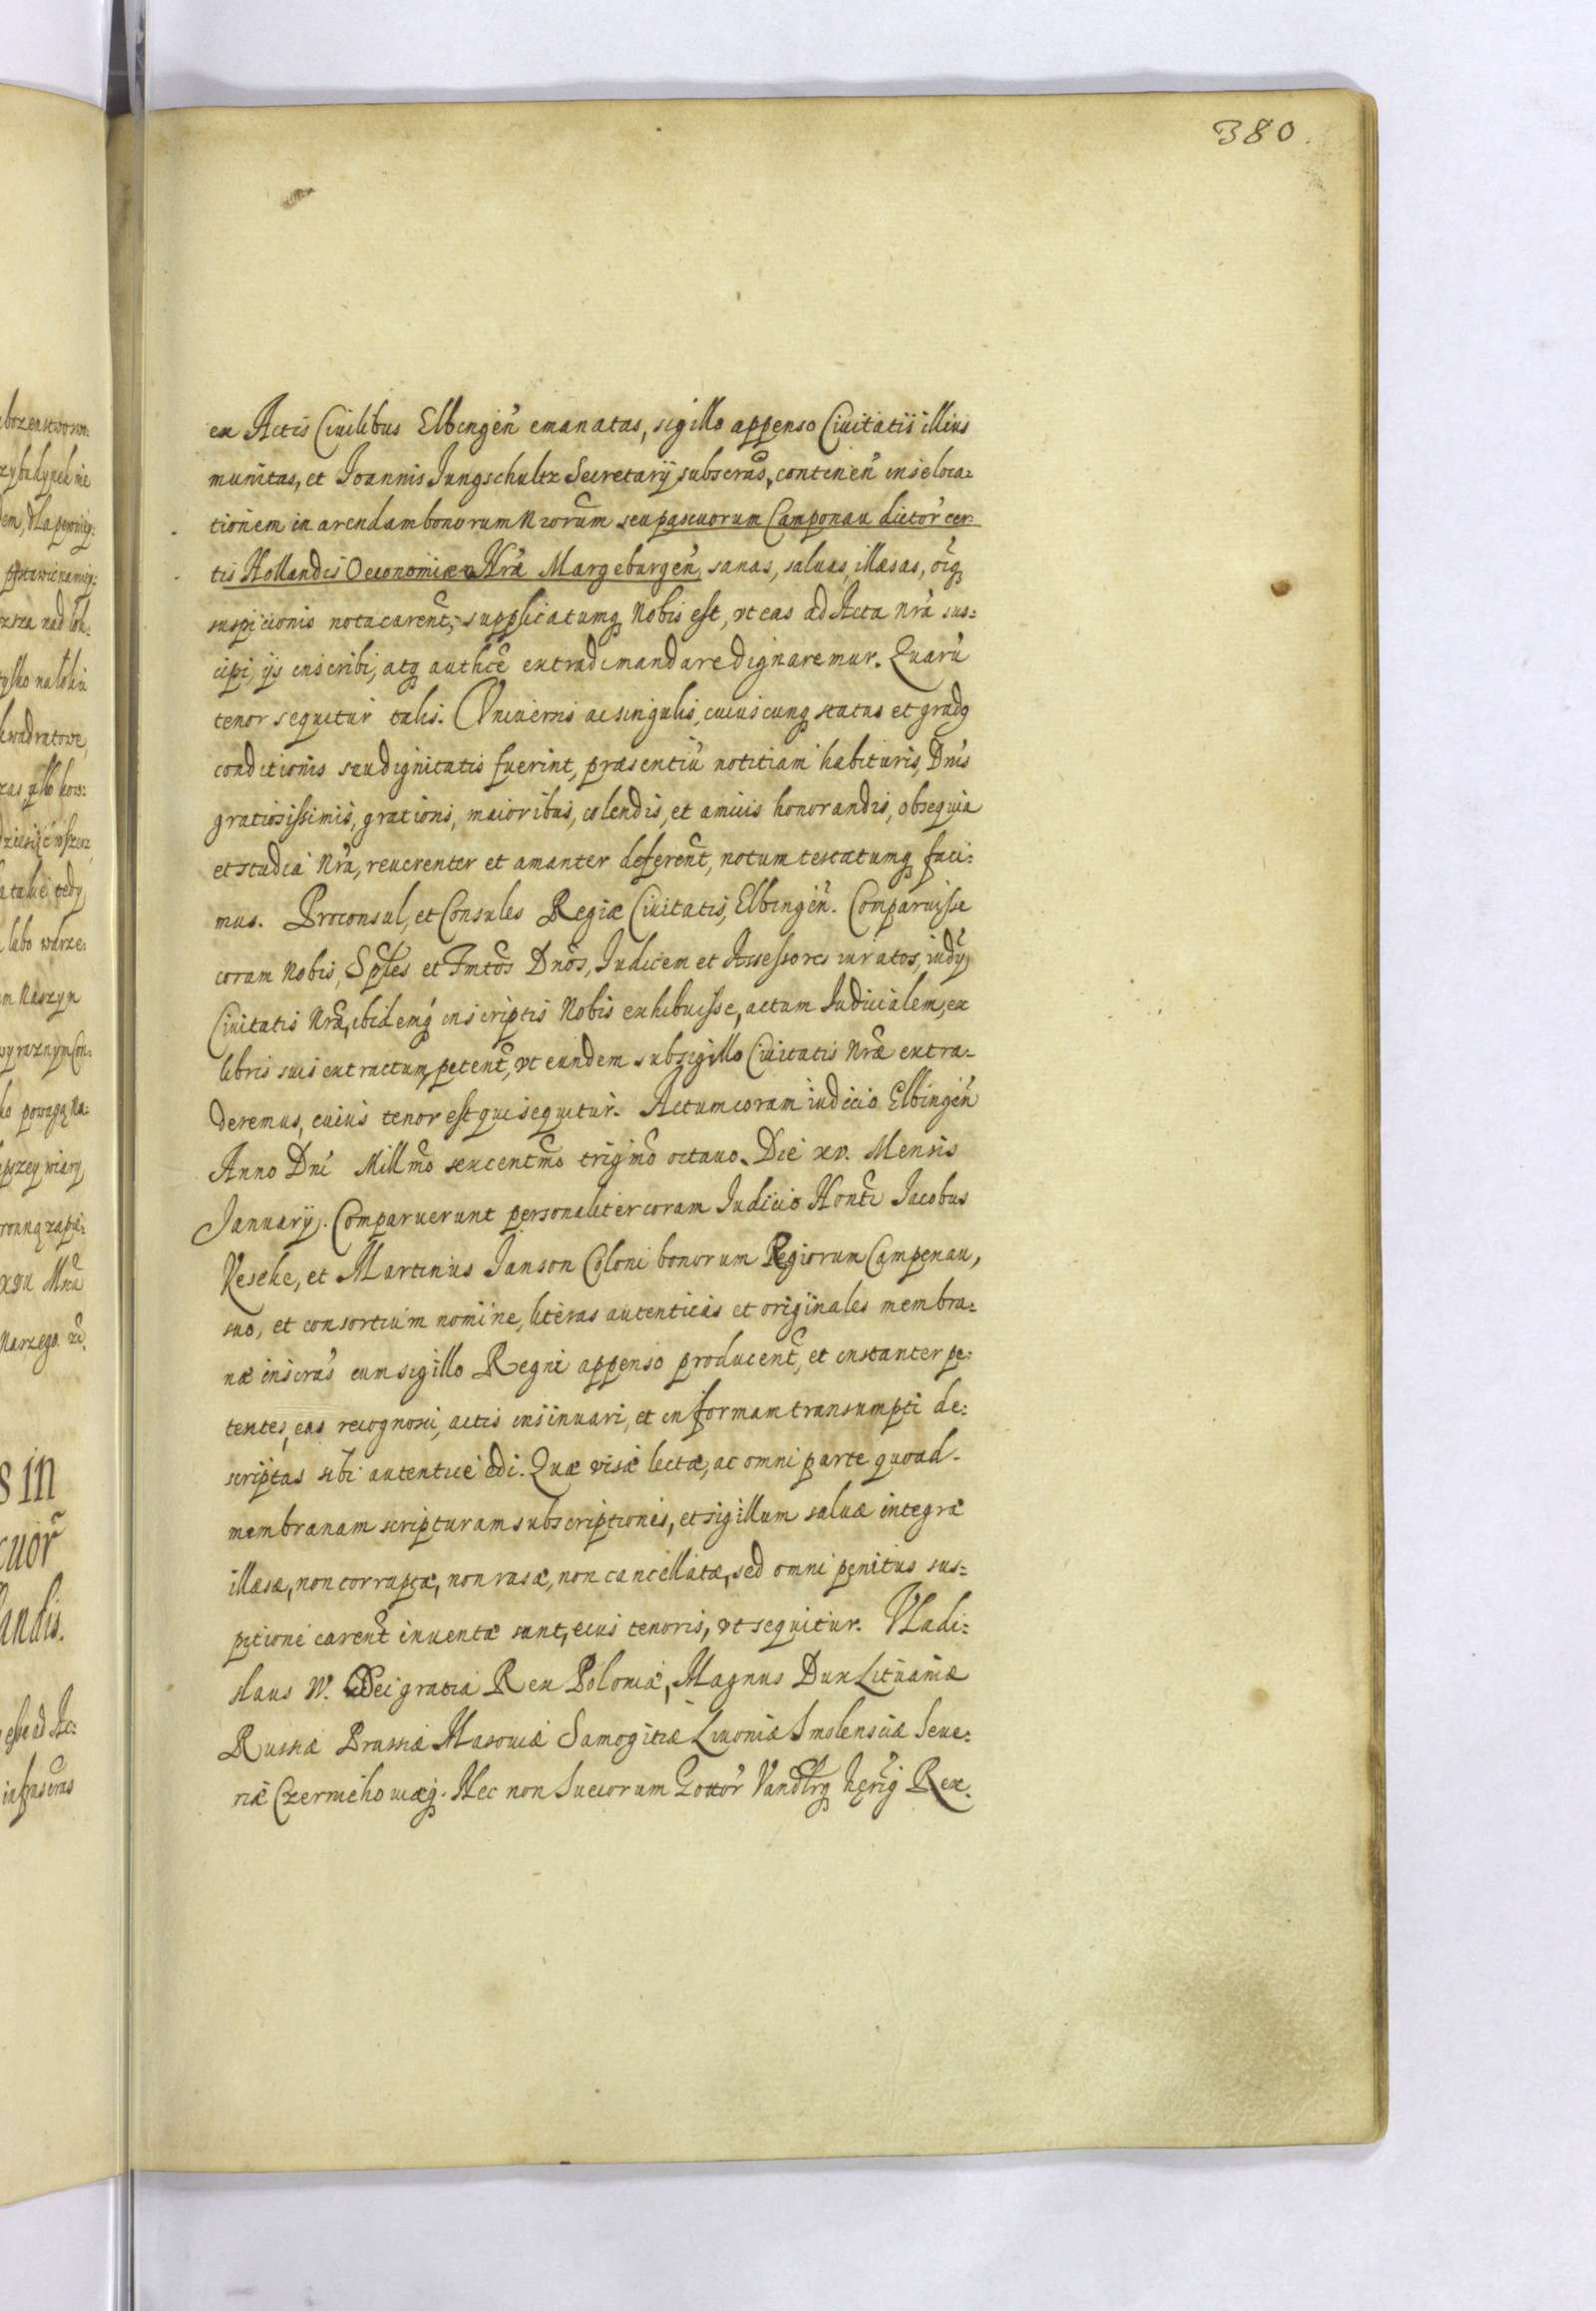 380.
ex Actis Ciuilibus Elbingeñ emanatas, sigillo appenso Ciuitatis illius
munitas, et Joannis Jungschultz Secretarij subscras, continen̄ in se loca=
tionem in arendam bonorum Nrorum seu pascuorum Camponau dictor̄ cer=
tis Hollandis Oeconomiæ Nrã Margeburgeñ, sanas, saluas, illæsas, oĩq
suspicionis nota carent̃, supplicatumq Nobis est, vt eas ad Acta nrã sus=
cipi, ijs inscribi, atq authce extradi mandare dignaremur. Quarũ
tenor sequitur talis. Vniuersis ac singulis, cuiuscunq status et gradq
conditionis seu dignitatis fuerint, præsentiũ notitiam habituris, Dnĩs
gratiosissimis, gratiosis, maioribus, colendis, et amicis honorandis, obsequia
et studia nrã, reuerenter et amanter deferent̃, notum testatumq faci=
mus. Proconsul, et Consules Regiæ Ciuitatis, Elbingeñ. Comparuisse
coram Nobis, Sples et Fmtos Dnõs, Judicem et Assessores iuratos, iudÿ
Ciuitatis Nrã, ibidemq in scriptis Nobis exhibuisse, actum Judicialem, ex
libris suis extractum, petent̃, vt eundem sub sigillo Ciuitatis Nræ extra=
deremus, cuius tenor est qui sequitur. Actum coram iudicio Elbingeñ
Anno Dnĩ Millmo sexcentmo trigmo octauo. Die xv. Mensis
Januarij. Comparuerunt personaliter coram Judicio Honti Jacobus
Keseke, et Martinus Janson Coloni bonorum Regiorum Campenau,
suo, et consortium nomine, literas autenticas et originales membra=
næ inscras cum sigillo Regni appenso producent̃, et instanter pe=
tentes, eas recognosci, actis insinuari, et in formam transumpti de=
scriptas sibi autentice edi. Quæ visæ lectæ, ac omni parte quoad
membranam scripturam subscriptionis, et sigillum saluæ integræ
illæsæ, non corruptæ, non rasæ, non cancellatæ, sed omni penitus sus=
pitione carent̃ inuentæ sunt, eius tenoris, vt sequitur. Vladi=
slaus IV. Dei gratia Rex Poloniæ, Magnus Dux Lituaniæ
Russiæ Prussiæ Masouiæ Samogitiæ Liuoniæ Smolensciæ Seue=
riæ Czerniehouiæq. Nec non Suecorum Gottor̄ Vandlrq hęriq Rex.